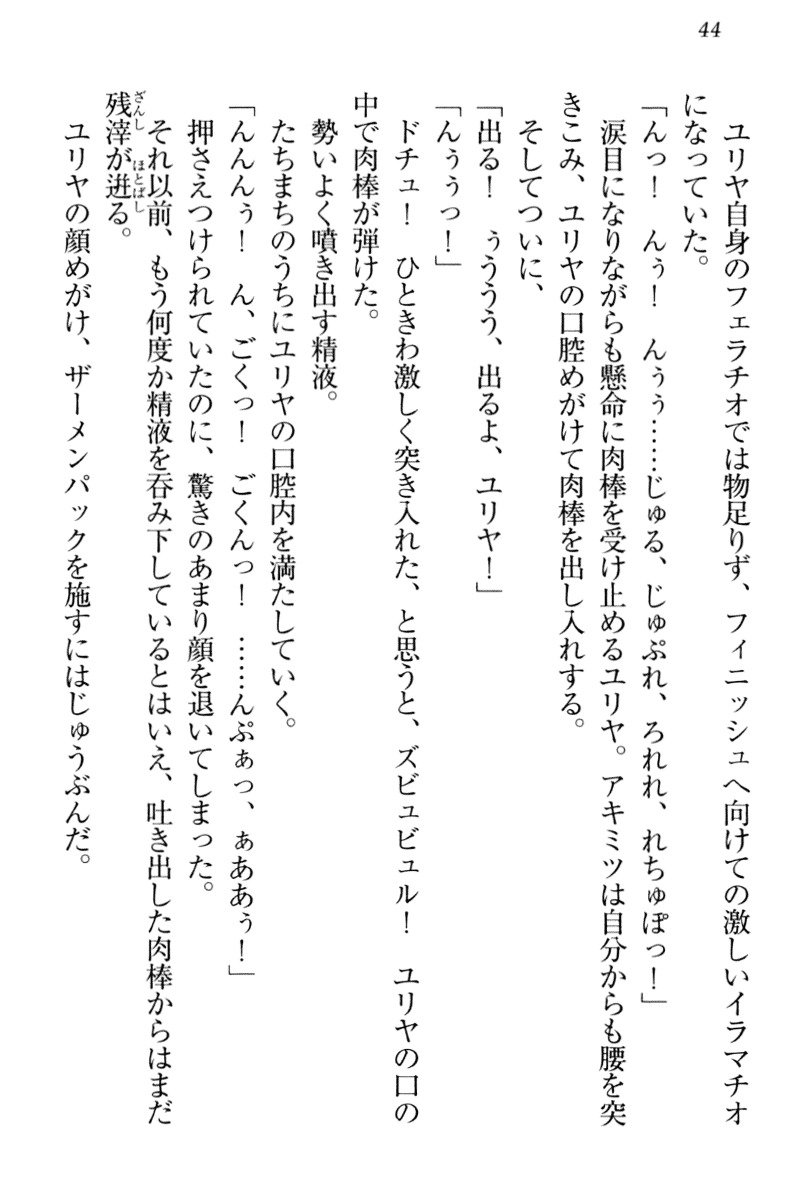 44
ユリヤ自身のフェラチオでは物足りず、フィニッシュへ向けての激しいイラマチオ
になっていた。
「んっ！　んぅ！　んぅぅ……じゅる、じゅぷれ、ろれれ、れちゅぽっ！」
涙目になりながらも懸命に肉棒を受け止めるユリヤ。アキミツは自分からも腰を突
きこみ、ユリヤの口腔めがけて肉棒を出し入れする。
そしてついに、
「出る！　ぅううう、出るよ、ユリヤ！」
「んぅぅっ！」
ドチュ！　ひときわ激しく突き入れた、と思うと、ズビュビュル！　ユリヤの口の
中で肉棒が弾けた。
勢いよく噴き出す精液。
たちまちのうちにユリヤの口腔内を満たしていく。
「んんんぅ！　ん、ごくっ！　ごくんっ！　……んぷぁっ、ぁああぅ！」
押さえつけられていたのに、驚きのあまり顔を退いてしまった。
それ以前、もう何度か精液を呑み下しているとはいえ、吐き出した肉棒からはまだ
残滓ざんしが迸ほとばしる。
ユリヤの顔めがけ、ザーメンパックを施すにはじゅうぶんだ。